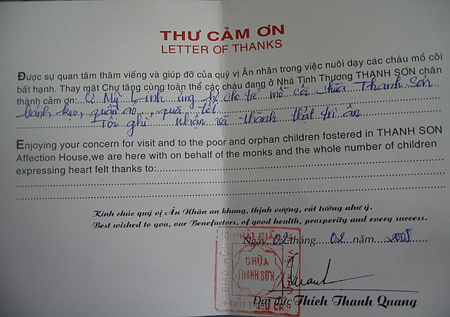 THƯ CẢM ƠN
LETTER OF THANKS
Được sự quan tâm thăm viếng và giúp đỡ của quý vị Ân nhân trong việc nuôi dạy các cháu mồ côi
bất hạnh. Thay mặt Chư tăng cùng toàn thể các cháu đang ở Nhà Tình Thương THANH SƠN chân
thành cảm ơn: Mỹ Linh ủng hộ cho trẻ mồ côi chùa Thanh Sơn
bánh kẹo, quần áo, quà tết
Tôi ghi nhận và thành thật tri ân
Enjoying your concern for visit and to the poor and orphan children fostered in THANH SON
Affection House,we are here with on behalf of the monks and the whole number of children
expressing heart felt thanks to:
Kính chúc quý vị Ân Nhân an khang, thịnh vượng, cát tường như ý.
Best wished to you, our Benefactors, of good health, prosperity and every success.
Ngày 02 tháng 02 năm 2008
CHÙA
THANH SƠN
Đại đức Thích Thanh Quang